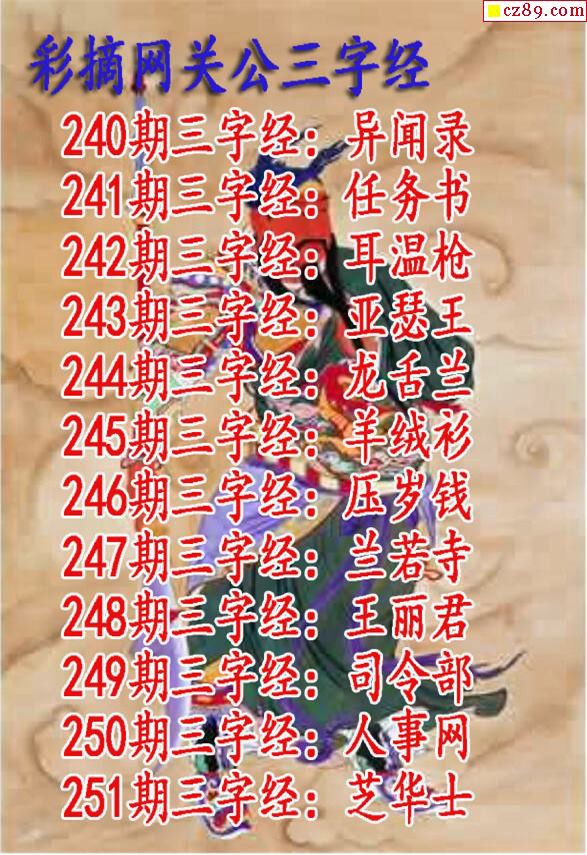 cz89.com
彩摘网关公三字经
240期三字经：异闻录
241期三字经：任务书
242期三字经：耳温枪
243期三字经：亚瑟王
244期三字经：龙舌兰
245期三字经：羊绒衫
246期三字经：压岁钱
247期三字经：兰若寺
248期三字经：王丽君
249期三字经：司令部
250期三字经：人事网
251期三字经：芝华士